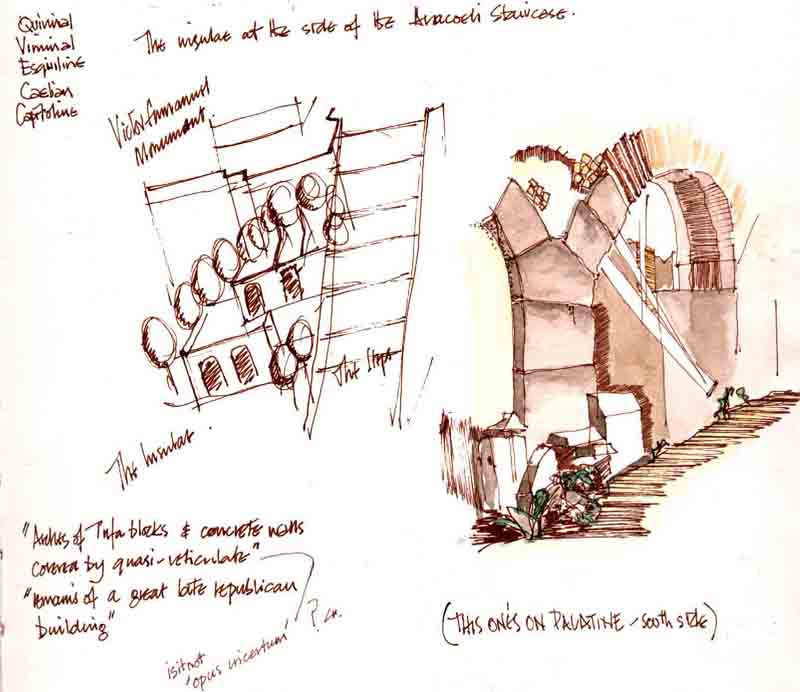 Quirinal
Viminal
Esquiline
Caelian
Capitoline
The insulae at the side of the Aracoeli Staircase.
Victor Emmanuel
Monument.
The Steps
The Insulae.
"Arches of Tufa blocks & concrete walls
covered by quasi-reticulate"
"remains of a great late republican
building"
is it not
'opus incertum' ?
(THIS ONE'S ON PALATINE - South side)